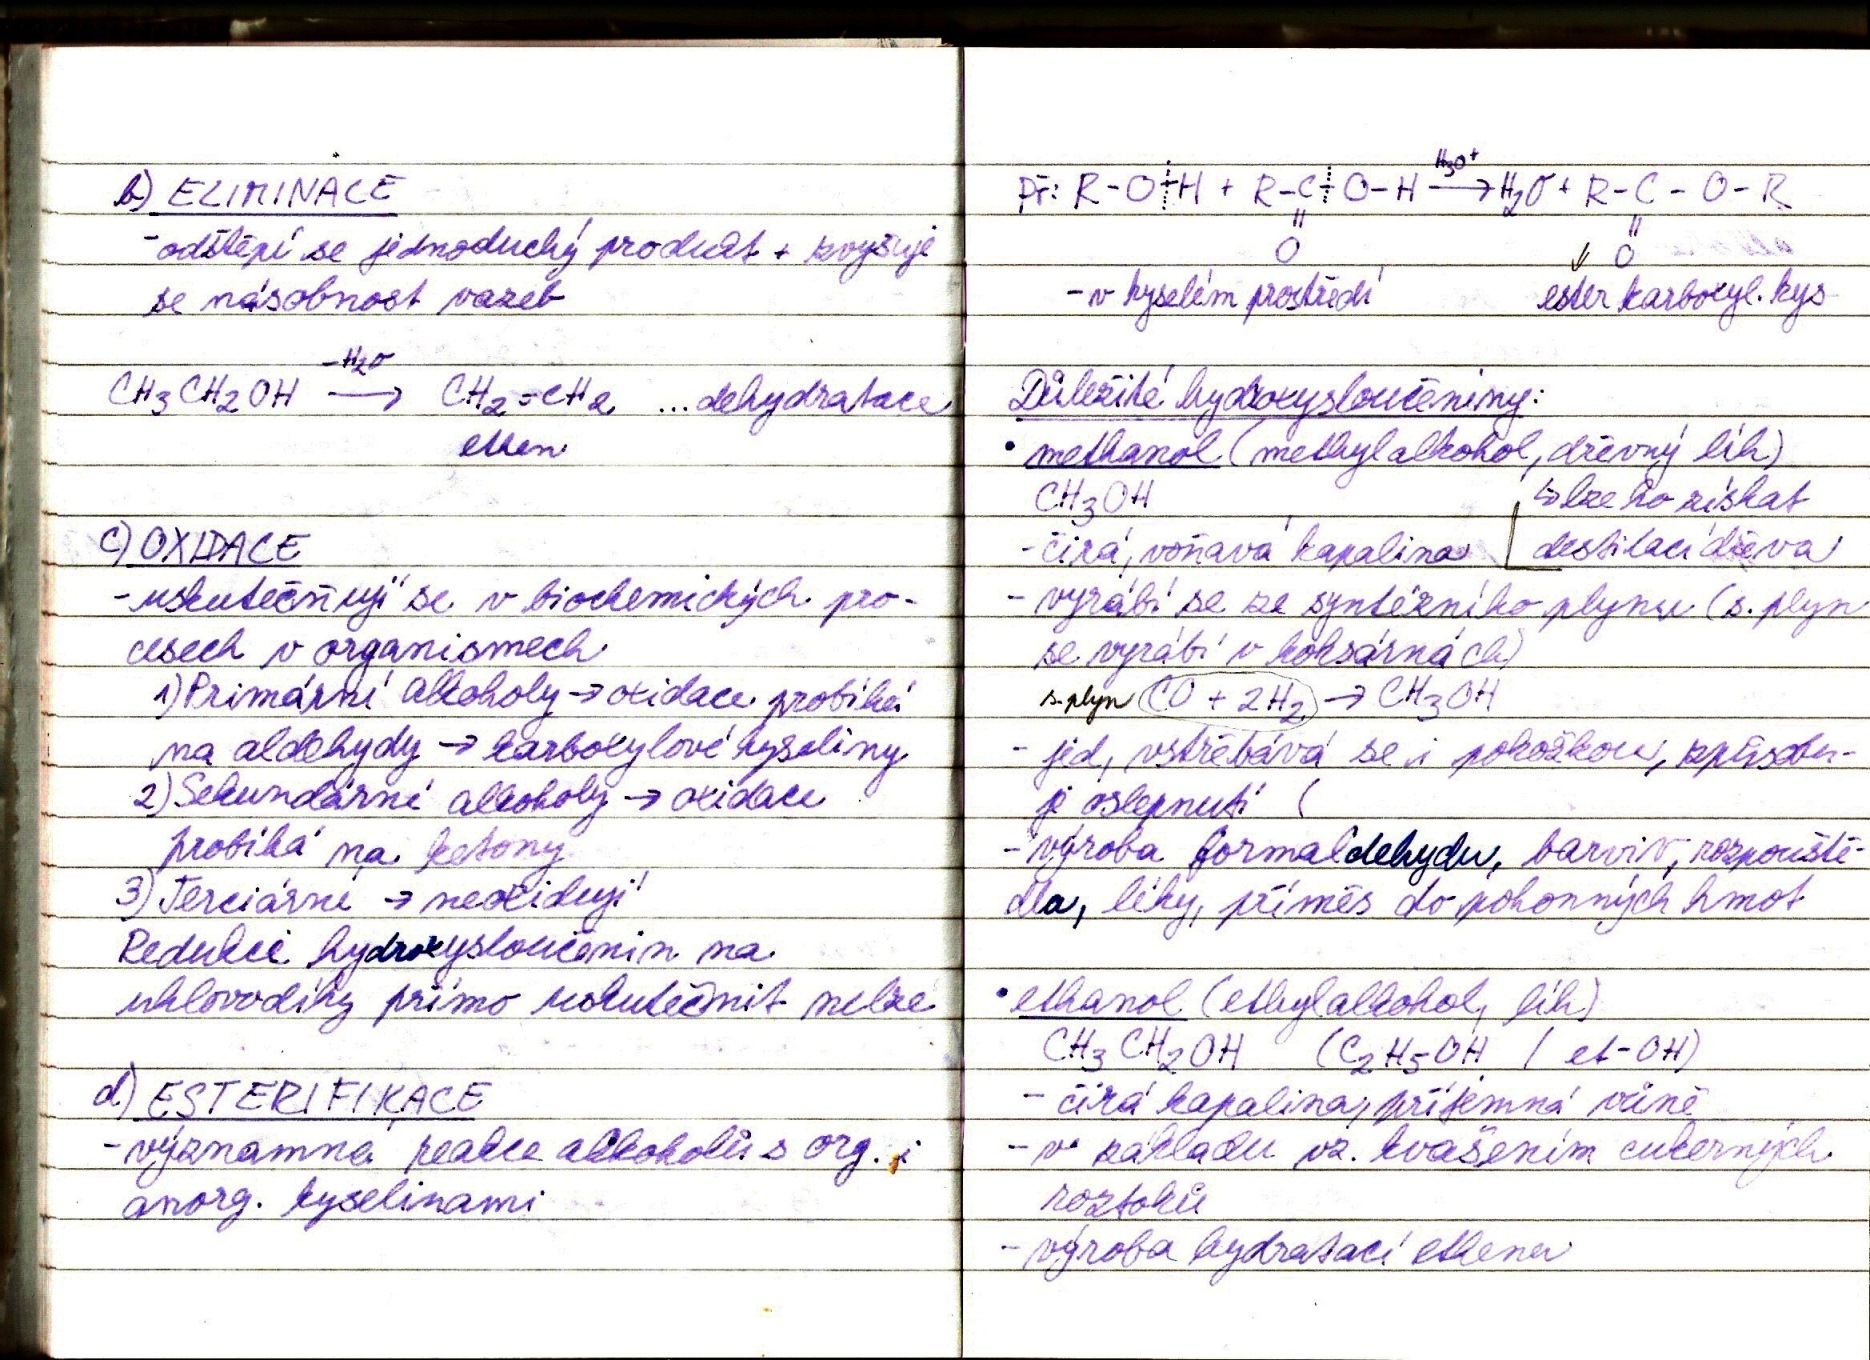 b) ELIMINACE
- odštěpí se jednoduchý produkt + zvyšuje
se násobnost vazeb
-H₂O
CH₃CH₂OH ⟶ CH₂=CH₂ ...dehydratace
ethen
c) OXIDACE
- uskutečňují se v biochemických pro-
cesech v organismech
1) Primární alkoholy → oxidace probíhá
na aldehydy → karboxylové kyseliny
2) Sekundární alkoholy → oxidace
probíhá na ketony
3) Terciární → neoxidují
Redukci hydroxysloučenin na
uhlovodíky přímo uskutečnit nelze
d) ESTERIFIKACE
- významná reakce alkoholů s org. i
anorg. kyselinami
H₃O⁺
Př: R-O-H + R-C-O-H ⟶ H₂O + R-C-O-R
O O
- v kyselém prostředí ester karboxyl. kys
Důležité hydroxysloučeniny:
• methanol (methylalkohol, dřevný líh)
CH₃OH ↳ lze ho získat
- čirá, voňavá kapalina destilací dřeva
- vyrábí se ze syntézního plynu (s. plyn
se vyrábí v koksárnách)
s. plyn CO + 2H₂ → CH₃OH
- jed, vstřebává se i pokožkou, způsobu-
je oslepnutí (
- výroba formaldehydu, barviv, rozpouště-
dla, léky, příměs do pohonných hmot
• ethanol (ethylalkohol, líh)
CH₃CH₂OH (C₂H₅OH / et-OH)
- čirá kapalina, příjemná vůně
- v základu vz. kvašením cukerných
roztoků
- výroba hydratací ethenu